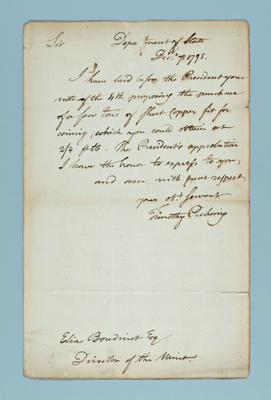 Sir Department of State
Decr. 7 1795.
I have laid before the President your
note of the 4th proposing the purchase
of a few tons of sheet copper fit for
coining; which you could obtain at
2/4 pr lb. The President's approbation
I have the honor to express to you;
and am with great respect,
your obt. servant
Timothy Pickering
Elias Boudinot Esq
Director of the Mint.